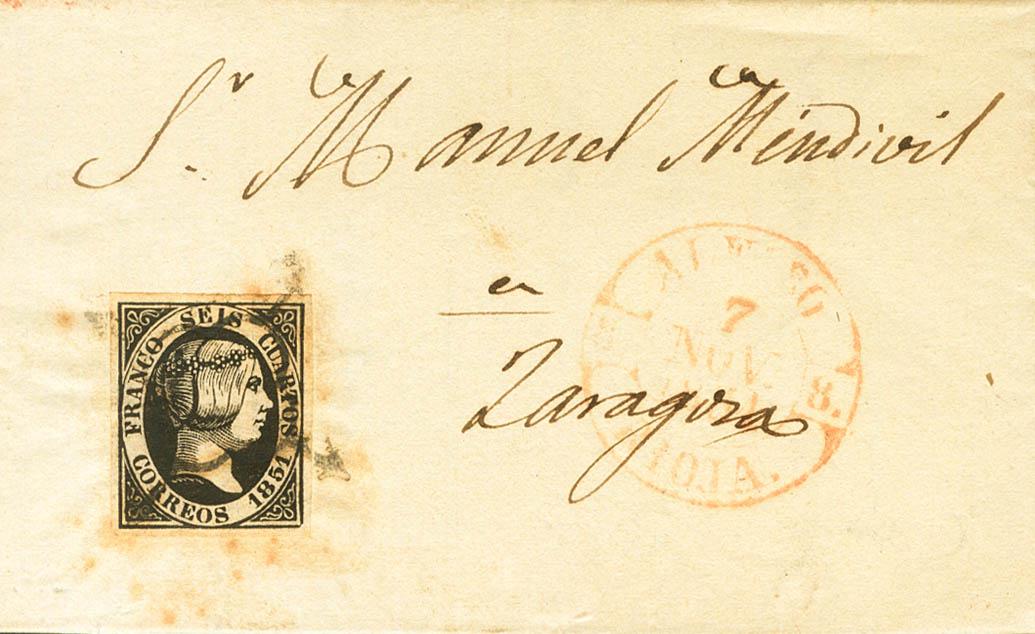 Sr Manuel Mendivil
en
Zaragoza
FRANCO SEIS CUARTOS
CORREOS 1851
7
NOV.
8.
IOJA.